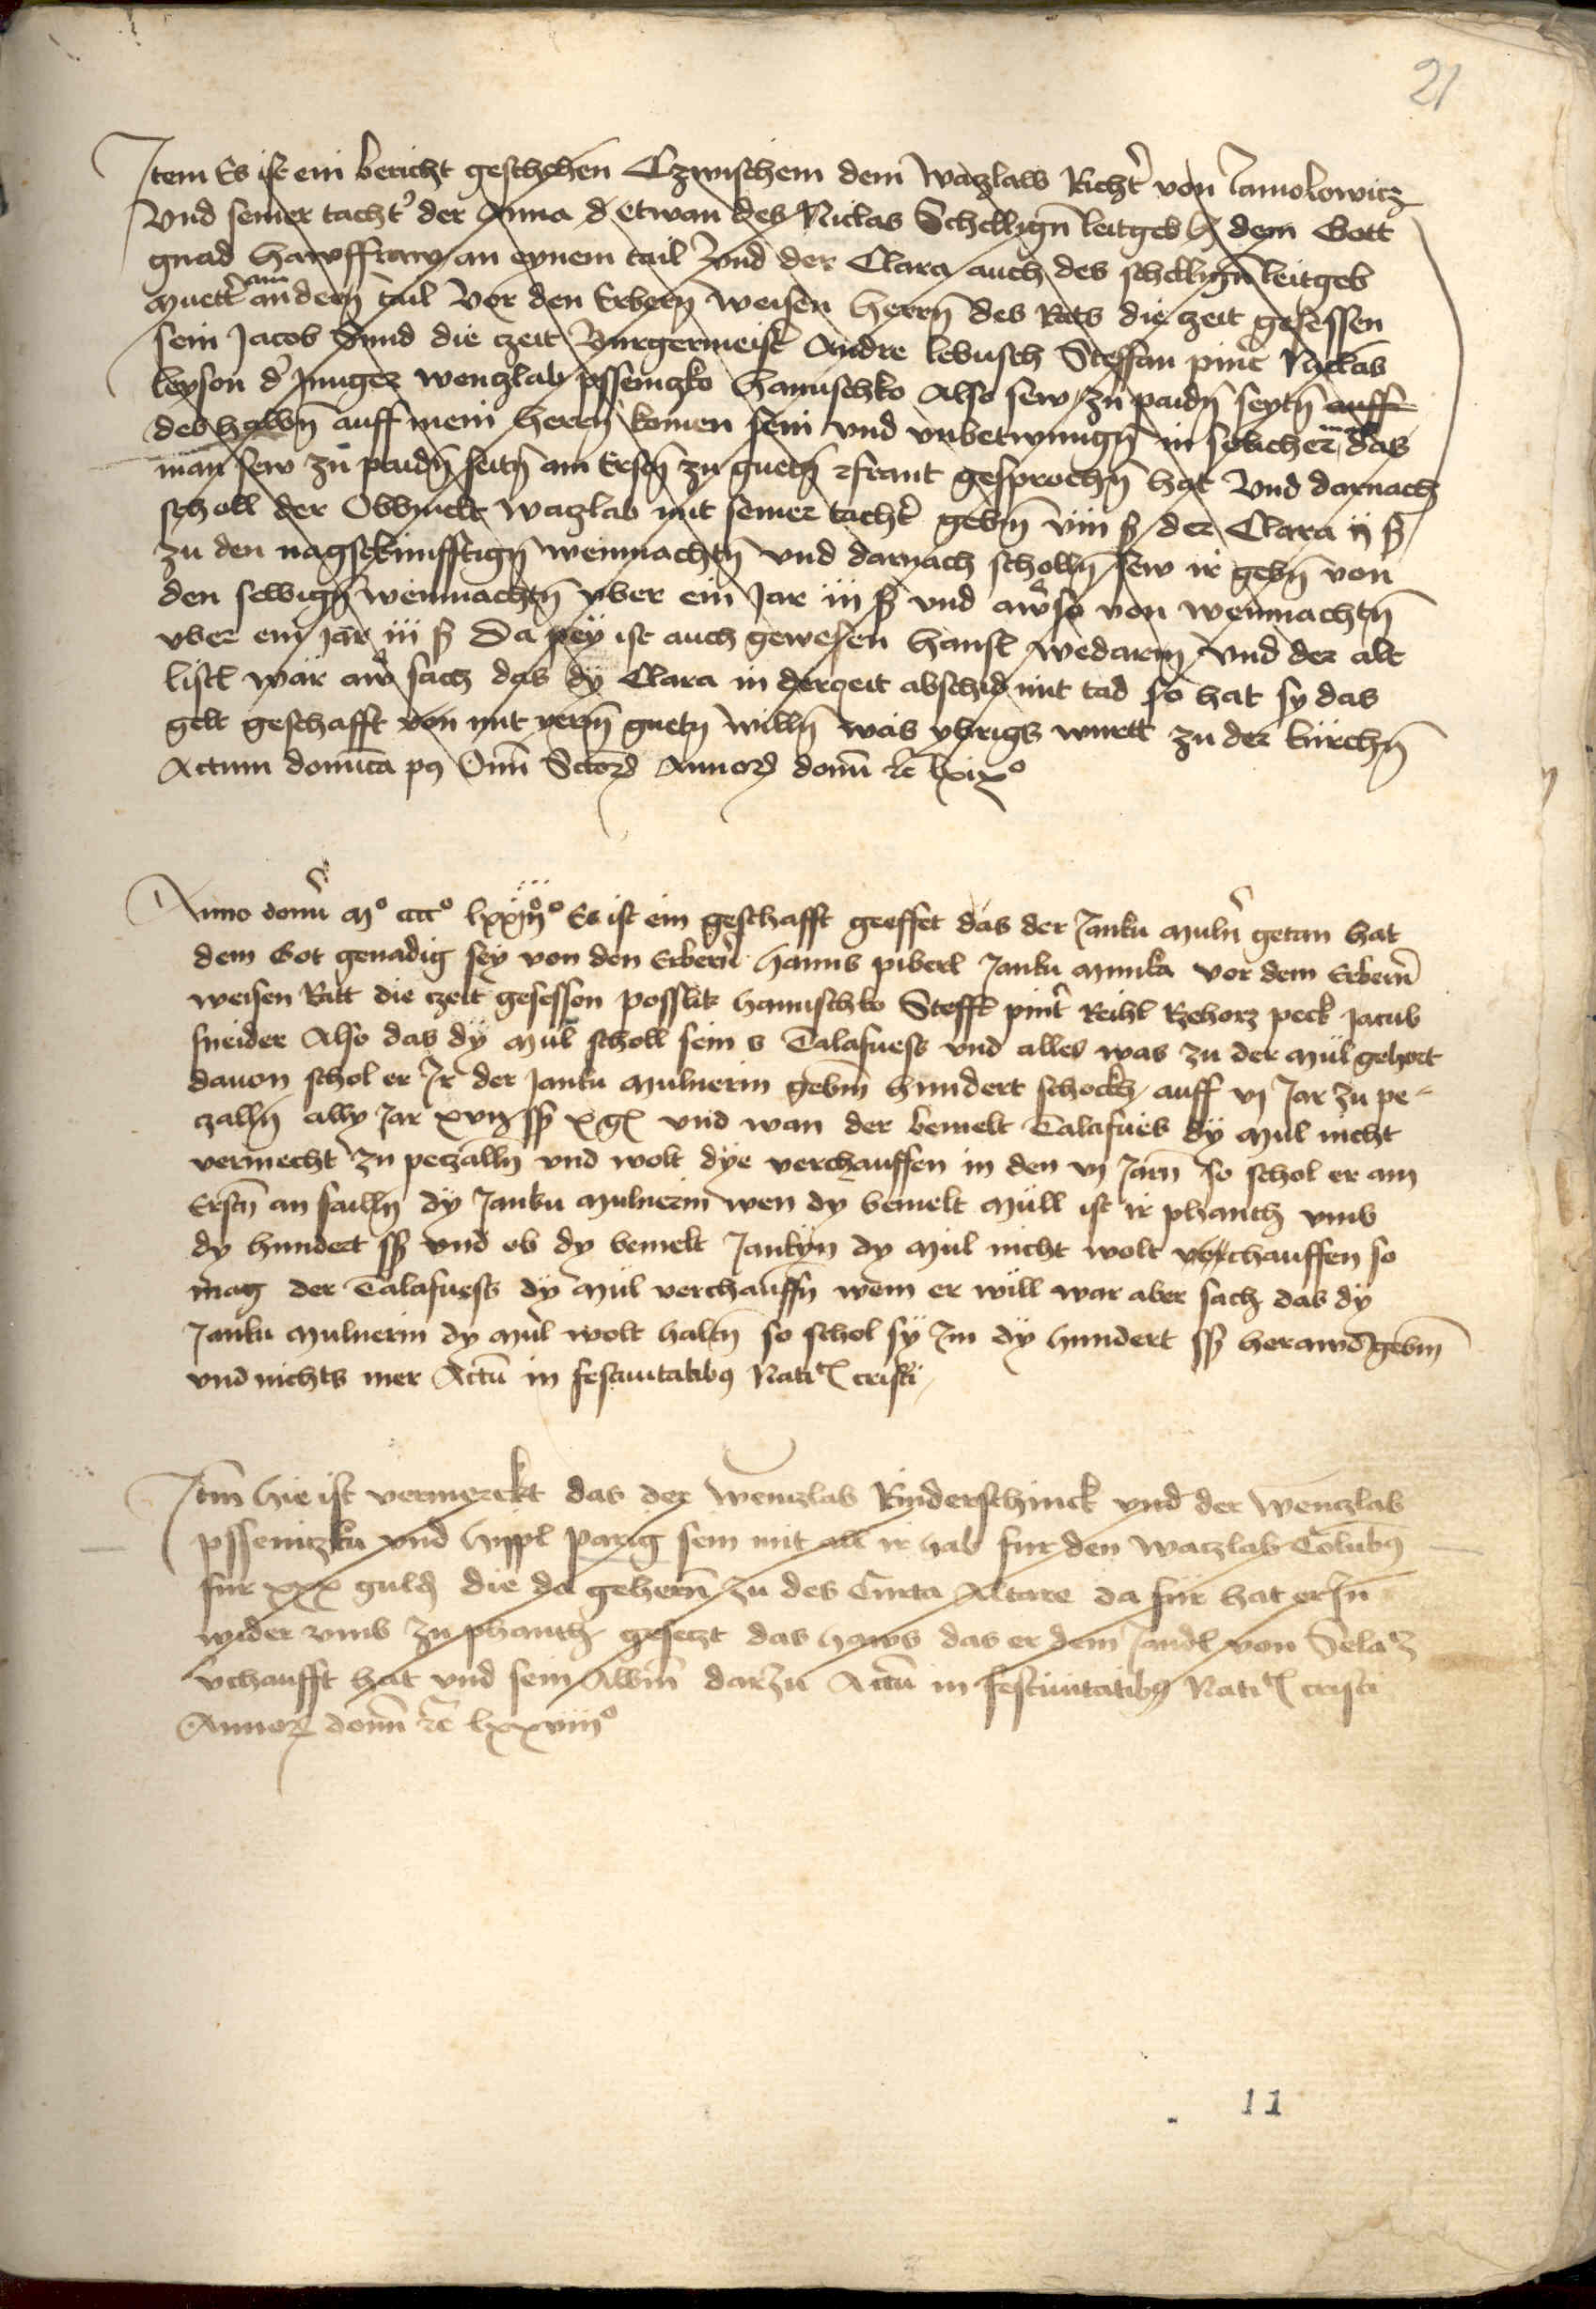 21
Item Es ist ein bericht geschehen Czwischem dem wazlaw Richt̉ von lamolowicz
Vnd seiner tacht̉ der Anna d̉ etwan des Niclas Schellign̄ leitgeb dem Gott
gnad hawsfraw an eynem tail Vnd der Clara auch des schellign̄ leitgeb
muett̉ am andern̄ tail Vor den Erbern̄ weisen herrn̄ des Rats die czeit gesessen
sein Jacob die czeit Burgermeist̉ Andre lebusch Steffan pint̉ Niclas
leyson d̉ Junger wenczlab pssenczko hanuschko Also sew zu paidn̄ seytn̄ auff
des halbn̄ auff mein herrn̄ komen sein vnd vnbetwungn̄ in solicher das
man sew zu paidn̄ seitn̄ am Erstn̄ zu guetn̄ gesprochn̄ hat Vnd darnach
scholl der Obbmelt wazlab mit seiner tacht̉ gebn̄ viii ß der Clara ii ß
zu den nagstkunfftign̄ weinnachtn̄ vnd darnach scholln̄ sew ir gebn̄ von
den selbign̄ weinnachtn̄ vber ein Jar iii ß vnd aw̉ so von weinnachtn̄
vber ein Jar iii ß Da pey ist auch gewesen hansl wedarm Vnd der alt
listl wär aw̉ sach das dÿ Clara in derczeit abschid mit tad so hat sy das
gelt geschafft von mit guetn̄ willn̄ was vbrigs wurtt zu der kirchn̄
Actum domīca p9 Om̄ Sctorꝝ Annorꝝ domī ꝛc̄ lxixº
Anno domī Mº ccccº lxxiiiiº Es ist ein geschafft geeffet das der Janku muln̉ getan hat
dem Got genadig sey von den Erbern̄ hanns piberl Janku munka vor dem Erbern̄
weisen Ratt die czeit gesessen posslik hanuschko Steffl pint̉ Reihl Rzehorz peck Jacub
sneider Also das dÿ mül scholl sein s Talafuess vnd alles was zu der mül gehort
dauon schol er Ir der Janku mulnerin gebm̄ hundert schock auff vj Jar zu pe-
czalln̄ ally Jar xvij ß x gl vnd wan der bemelt Talafues dÿ mul nicht
vermecht zu peczalln̄ vnd wolt dye verchauffen in den vj Jarn̄ so schol er am
Erstn̄ an failln̄ dÿ Janku mulnerin wen dy bemelt müll ist ir phanth vmb
dy hundert ß vnd ob dy bemelt Jankyn dy mül nicht wolt verchauffen so
mag der Talafuess dÿ mül verchauffn̄ wem er will war aber sach das dy
Janku mulnerin dy mül wolt haltn̄ so schol sÿ Im dÿ hundert ß herawsgebm̄
vnd nichts mer Actū in festiuitatib9 Nati cristi
Itm̄ hie ist vermerckt das der wenczlab Rinderschinck vnd der wenczlab
pssenitzku vnd hippl parig sein mit all ir hab fur den waczlab Colub9
fur xxx guld die da gehern̄ zu des Curta Altare da fur hat er In
wider vmb zu phanth geseczt das haws das er dem Jandl von Sela
v̉chaufft hat vnd sein darzu Actū in festiuitatib9 Nati cristi
Annorꝝ domī ꝛc̄ lxxviiiº
11